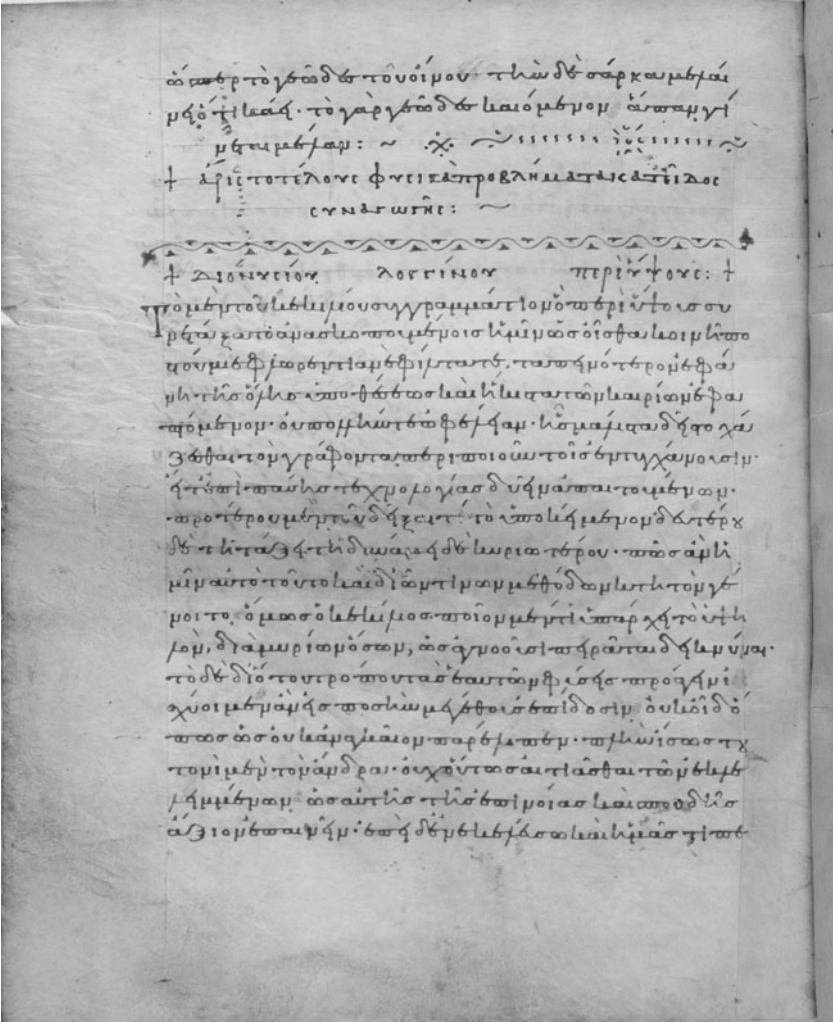 ὥσπερ τὸ γεῶδες τοῦ οἴνου· τὴν δὲ σάρκα μελαί
νει ὅτι κάει· τὸ γὰρ γεῶδες καιόμενον ἅπαν γί
νεται μέλαν:
ἀριστοτέλους φυσικὰ προβλήματα κατ' εἶδος
συναγωγῆς:
διονυσίου λογγίνου περὶ ὕψους:
Τὸ μὲν τοῦ κεκιλίου συγγραμμάτιον ὃ περὶ ὕψους συ
νετάξατο ἀνασκοπουμένοις ἡμῖν ὡς οἶσθα κοινῆ πο
στούμιε φλωρεντιανὲ φίλτατε, ταπεινότερον ἐφά
νη τῆς ὅλης ὑποθέσεως καὶ ἥκιστα τῶν καιρίων ἐφα
πτόμενον· οὐ πολλήν τε ὠφέλειαν· ἧς μάλιστα δεῖ στοχά
ζεσθαι τὸν γράφοντα περιποιοῦν τοῖς ἐντυγχάνουσιν·
εἴτ' ἐπὶ πάσης τεχνολογίας δυεῖν ἀπαιτουμένων·
προτέρου μὲν τοῦ δεῖξαι τί τὸ ὑποκείμενον· δευτέρου
δὲ τῆ τάξει τῆ δυνάμει δὲ κυριωτέρου· πῶς ἂν ἡ
μῖν αὐτὸ τοῦτο καὶ δι' ὧν τινων μεθόδων κτητὸν γέ
νοιτο, ὅμως ὁ κεκίλιος ποῖον μέν τι ὑπάρχει τὸ ὑψη
λὸν, διὰ μυρίων ὅσων, ὡς ἀγνοοῦσι πειρᾶται δεικνύναι·
τὸ δὲ δι' ὅτου τρόπου τὰς ἑαυτῶν φύσεις προάγειν ἰ
σχύοιμεν ἂν εἰς ποσὴν μεγέθους ἐπίδοσιν οὐκ οἶδ' ὅ
πως ὡς οὐκ ἀναγκαῖον παρέλιπεν· πλὴν ἴσως του
τονὶ μὲν τὸν ἄνδρα οὐχ οὕτως αἰτιᾶσθαι τῶν ἐκλε
λειμμένων ὡς αὐτῆς τῆς ἐπινοίας καὶ σπουδῆς
ἄξιον ἐπαινεῖν· ἐπεὶ δ' ἐνεκελεύσω καὶ ἡμᾶς τι πε